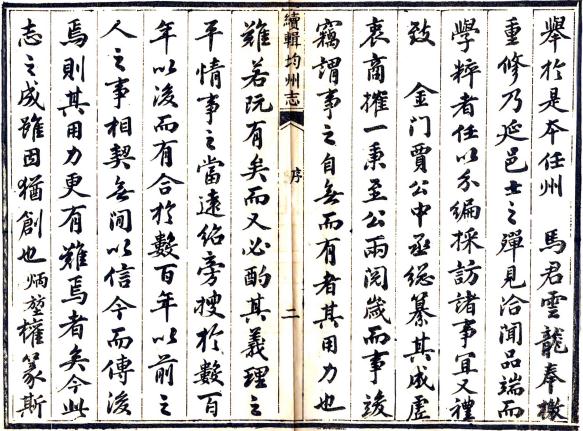 舉於是本任州　馬君雲龍奉檄
重修乃延邑士之殫見洽聞品端而
學粹者任以分編採訪諸事宜又禮
致　金門賈公中丞總纂其成虛
衷商搉一秉至公兩閱歲而事竣
竊謂事之自無而有者其用力也
續輯均州志　序　二
難若既有矣而又必酌其義理之
平情事之當遠紹旁搜於數百
年以後而有合於數百年以前之
人之事相契無間以信今而傳後
焉則其用力更有難焉者矣今此
志之成雖因猶創也炳堃權篆斯